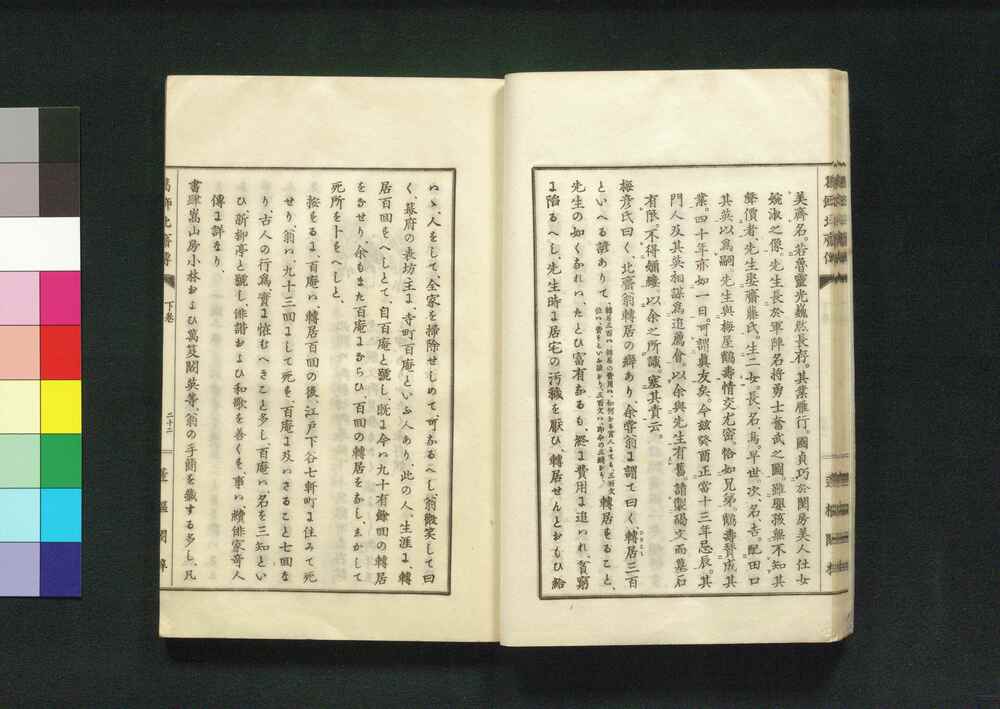 美齊名。若魯靈光巍然長存。其業雁行。國貞巧於閨房美人仕女
婉淑之像。先生長於軍陣名将勇士奮武之圖。雖嬰孩無不知其
聲價者、先生娶齋藤氏。生二女。長、名、鳥。早世。次、名、吉。配田口
其英以爲嗣。先生與梅屋鶴壽情交尤密。恰如兄弟。鶴壽賛成其
業。四十年亦如一日。可謂眞友矣。今玆癸酉正當十三年忌辰。其
門人及其英相謀爲追薦會。以余與先生有舊。請製碣文而墓石
有限。不得縷縷。以余之所識、塞其責云。
梅彦氏曰く、北齋翁轉居の癖あり、余嘗翁に謂て曰く轉居三百
といへる諺ありて、轉居をること、
先生の如くなれハ、たとひ富有なるも、終に費用に追ハれ、貧窮
に陥るへし、先生時に居宅の汚穢を厭ひ、轉居せんとおもひ給
ハヽ、人をして、全家を掃除せしめて、可なるへし、翁微笑して曰
く、幕府の表坊主に、寺町百庵といふ人あり、此の人、生涯に、轉
居百回をへしとて、自百庵と號し、既に今ハ九十有餘回の轉居
をなせり、余もまた百庵にならひ、百回の轉居をなし、しかして
死所を卜をへしと、
按をるに、百庵ハ轉居百回の後、江戸下谷七軒町に住みて死
せり、翁ハ、九十三回にして死を、百庵に及ハさること七回な
り、古人の行爲、實に怪むへきこと多し、百庵ハ、名を三知とい
ひ、新柳亭と號し、俳諧および和歌を善くを、事ハ續俳家奇人
傳に詳なり、
書肆嵩山房小林および萬笈閣英等、翁の手簡を藏する多し、凡
下卷
二十二